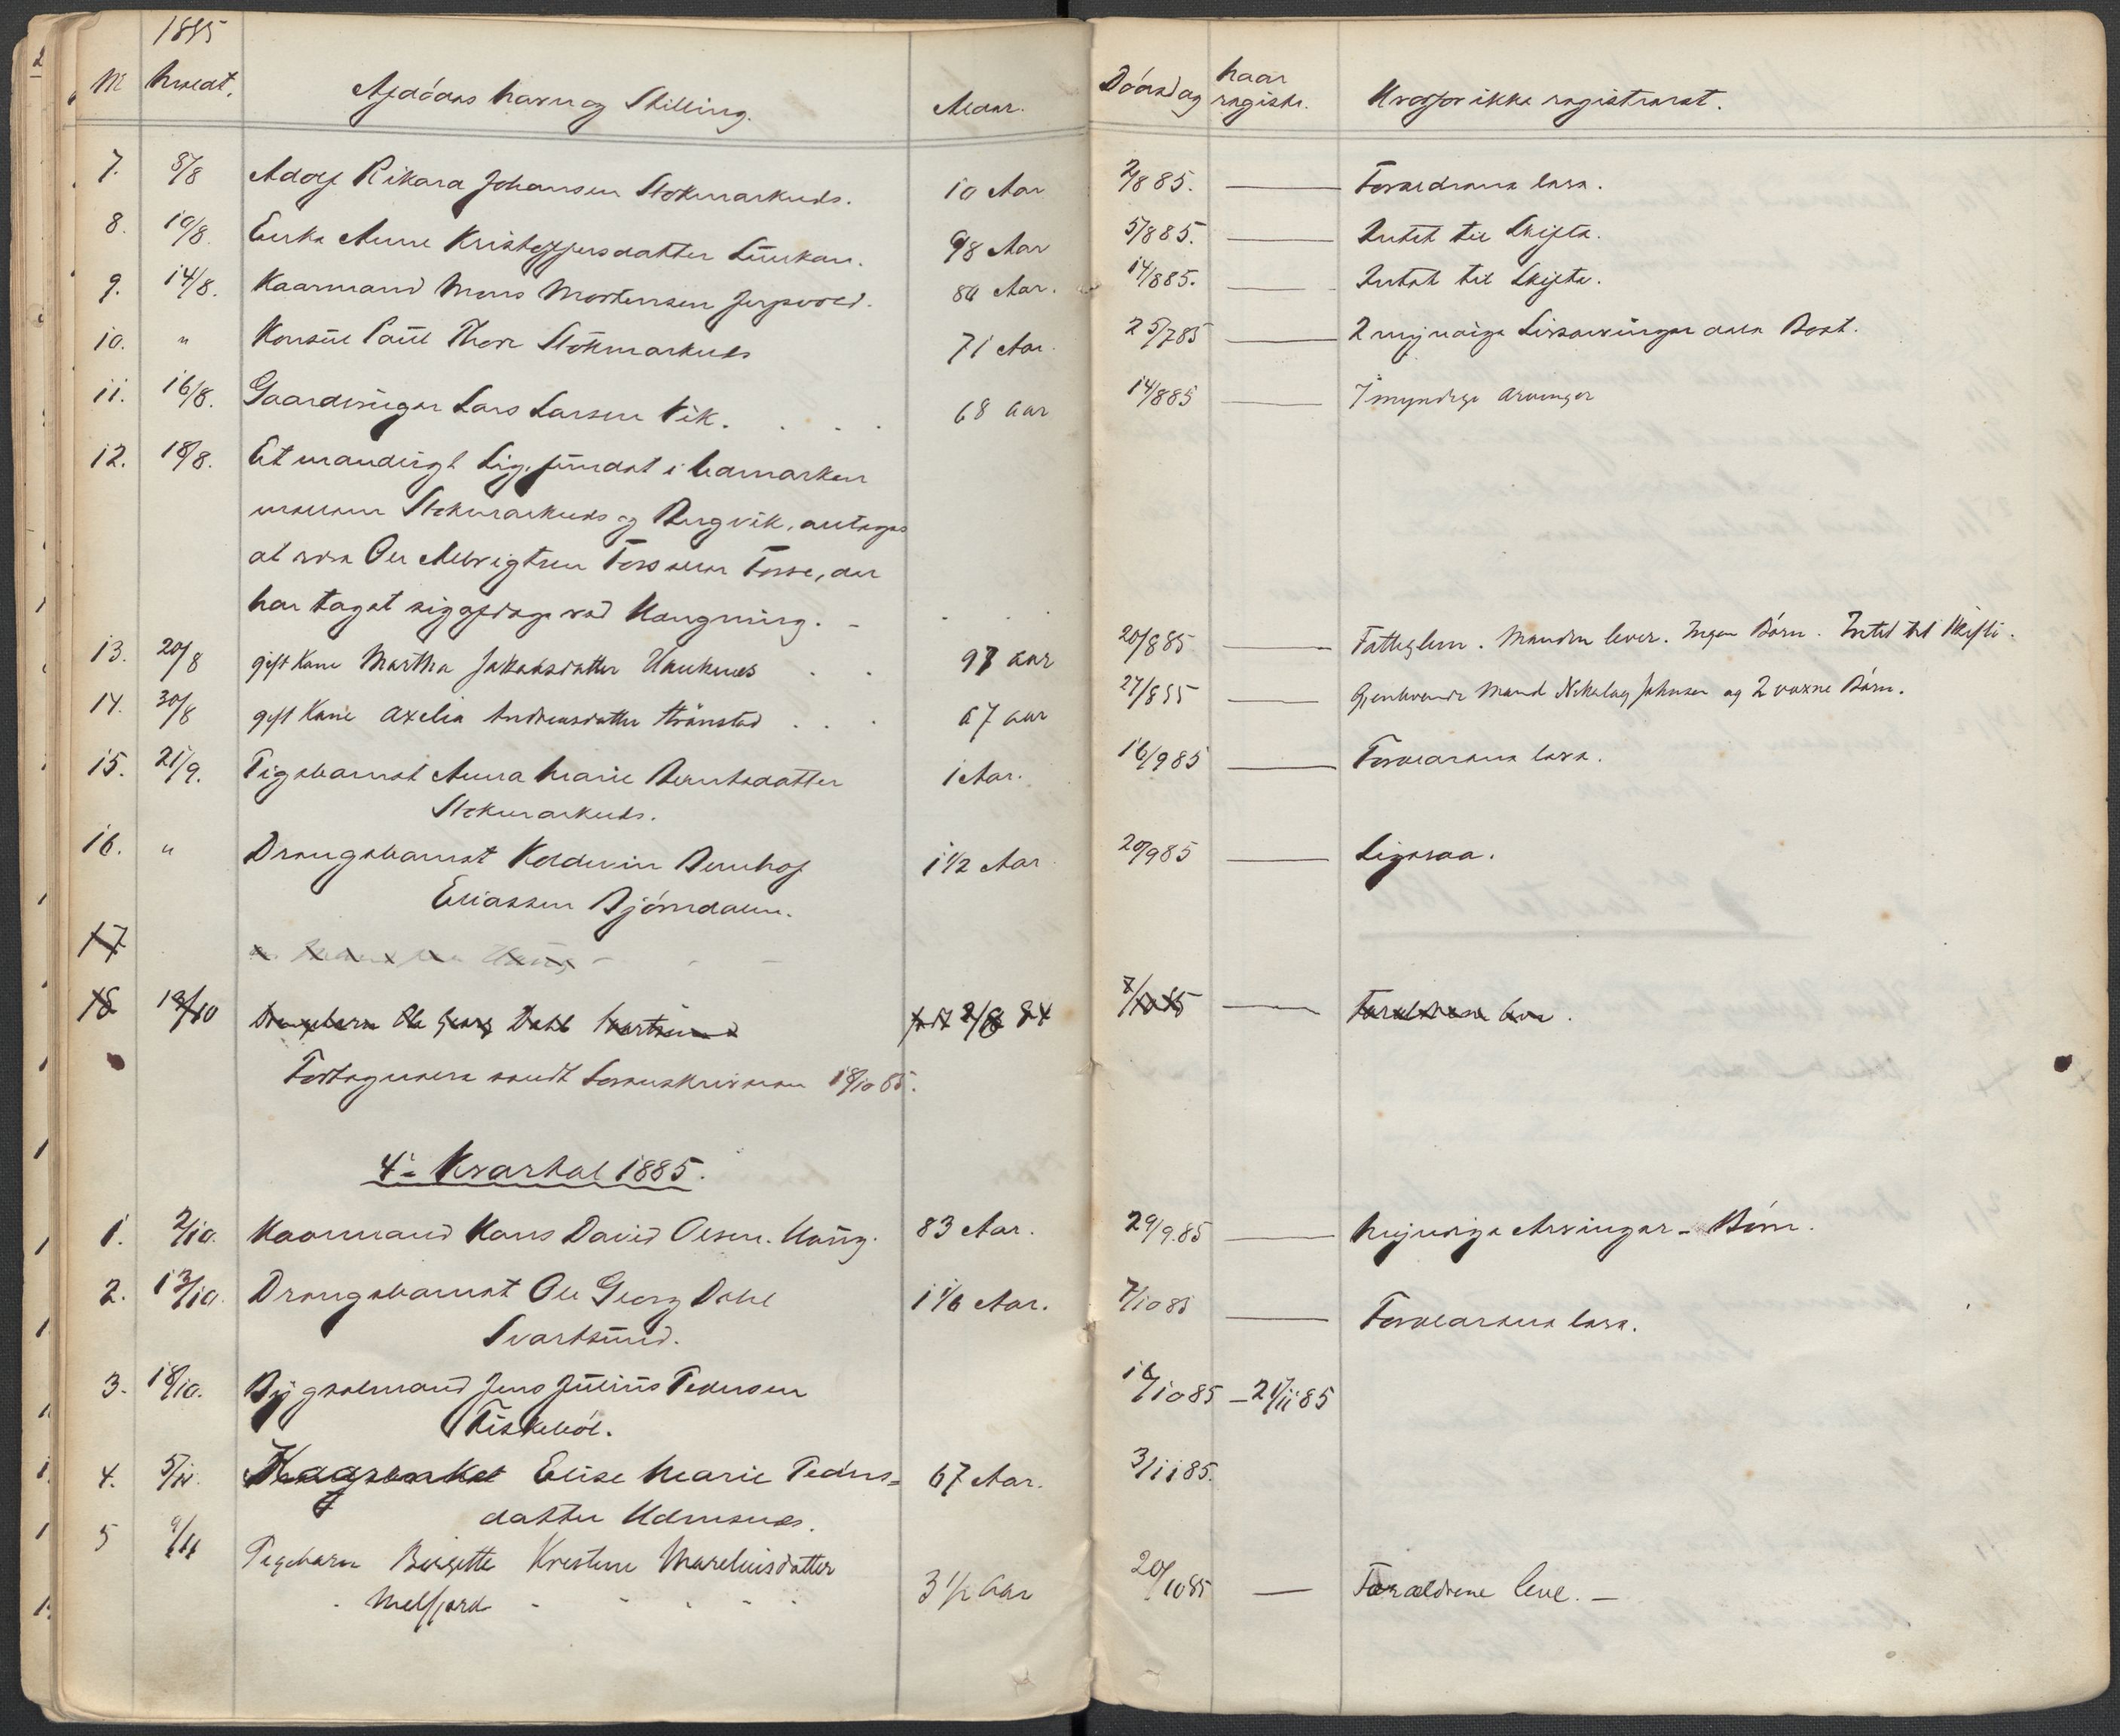 1885
N
Anmeldt.
Afdødes Navn og Stilling.
Alder.
Dødsdag
Naar registr.
Hvorfor ikke registreret.
7. 3/8 Adolf Rikard Johansen Stokmarknes. 10 Aar 2/8 85. — Forældrene leve.
8. 10/8. Enke Anne Kristoffersdatter 98 Aar 5/8 85. — Intet til Skifte.
9. 14/8. Kaarmand Mons Mortensen 80 Aar. 14/8 85. — Intet til Skifte.
10. " Konsul Paul Thore Stokmarknes 71 Aar. 25/7 85 — 2 myndige Livsarvinger Boet.
11. 16/8. Gaardbruger Lars Larsen Vik. 68 Aar 14/8 85 — 7 myndige Arvinger
12. 18/8. Et mandligt Lig, fundet i Udmarken
mellem Stokmarknes og Bergvik, antages
at være Ole Albrigtsen Foss eller Fosse, der
har taget sig af Dage ved Hængning. -
13. 20/8 gift Kone Martha Jakobsdatter Haukenes 97 Aar 20/8 85 — Fatteglem. Manden lever. Ingen Børn. Intet til Skifte.
14. 30/8 gift Kone Axelia Andreasdatter Grönstad 67 Aar 27/8 85 — Gjenlevende Mand Nikolay Johnsen og 2 voxne Børn.
15. 21/9. Pigebarnet Anna Marie Berntsdatter 1 Aar. 16/9 85 — Forældrene leve.
Stokmarknes.
16. " Drengebarnet Koldevin Bernhof 1 1/2 Aar 20/9 85 — Ligesaa.
Eliassen Bjørndalen.
17
18 13/10 Drengebarn Ole Georg Dahl Svartsund født 2/8 84 7/10 85 — Forældrene leve.
Fortegnelse sendt Sorenskriveren 18/10 85.
4de Kvartal 1885.
1. 2/10. Kaarmand Hans David Olsen. Haug. 83 Aar. 29/9 85 — Myndige Arvinger - Børn.
2. 13/10. Drengebarnet Ole Georg Dahl 1 1/6 Aar. 7/10 85 — Forældrene leve.
Svartsund.
3. 18/10. Bygselmand Jens Julius Pedersen 16/10 85 - 21/11 85
Fiskebøl.
4. 5/11. Elise Marie Peders= 67 Aar. 3/11 85.
datter Holmsnes.
5 9/11 Pigebarn Birgitte Kristine Mareliusdatter
Melfjord 3 1/2 Aar 20/10 85 — Forældrene leve. —